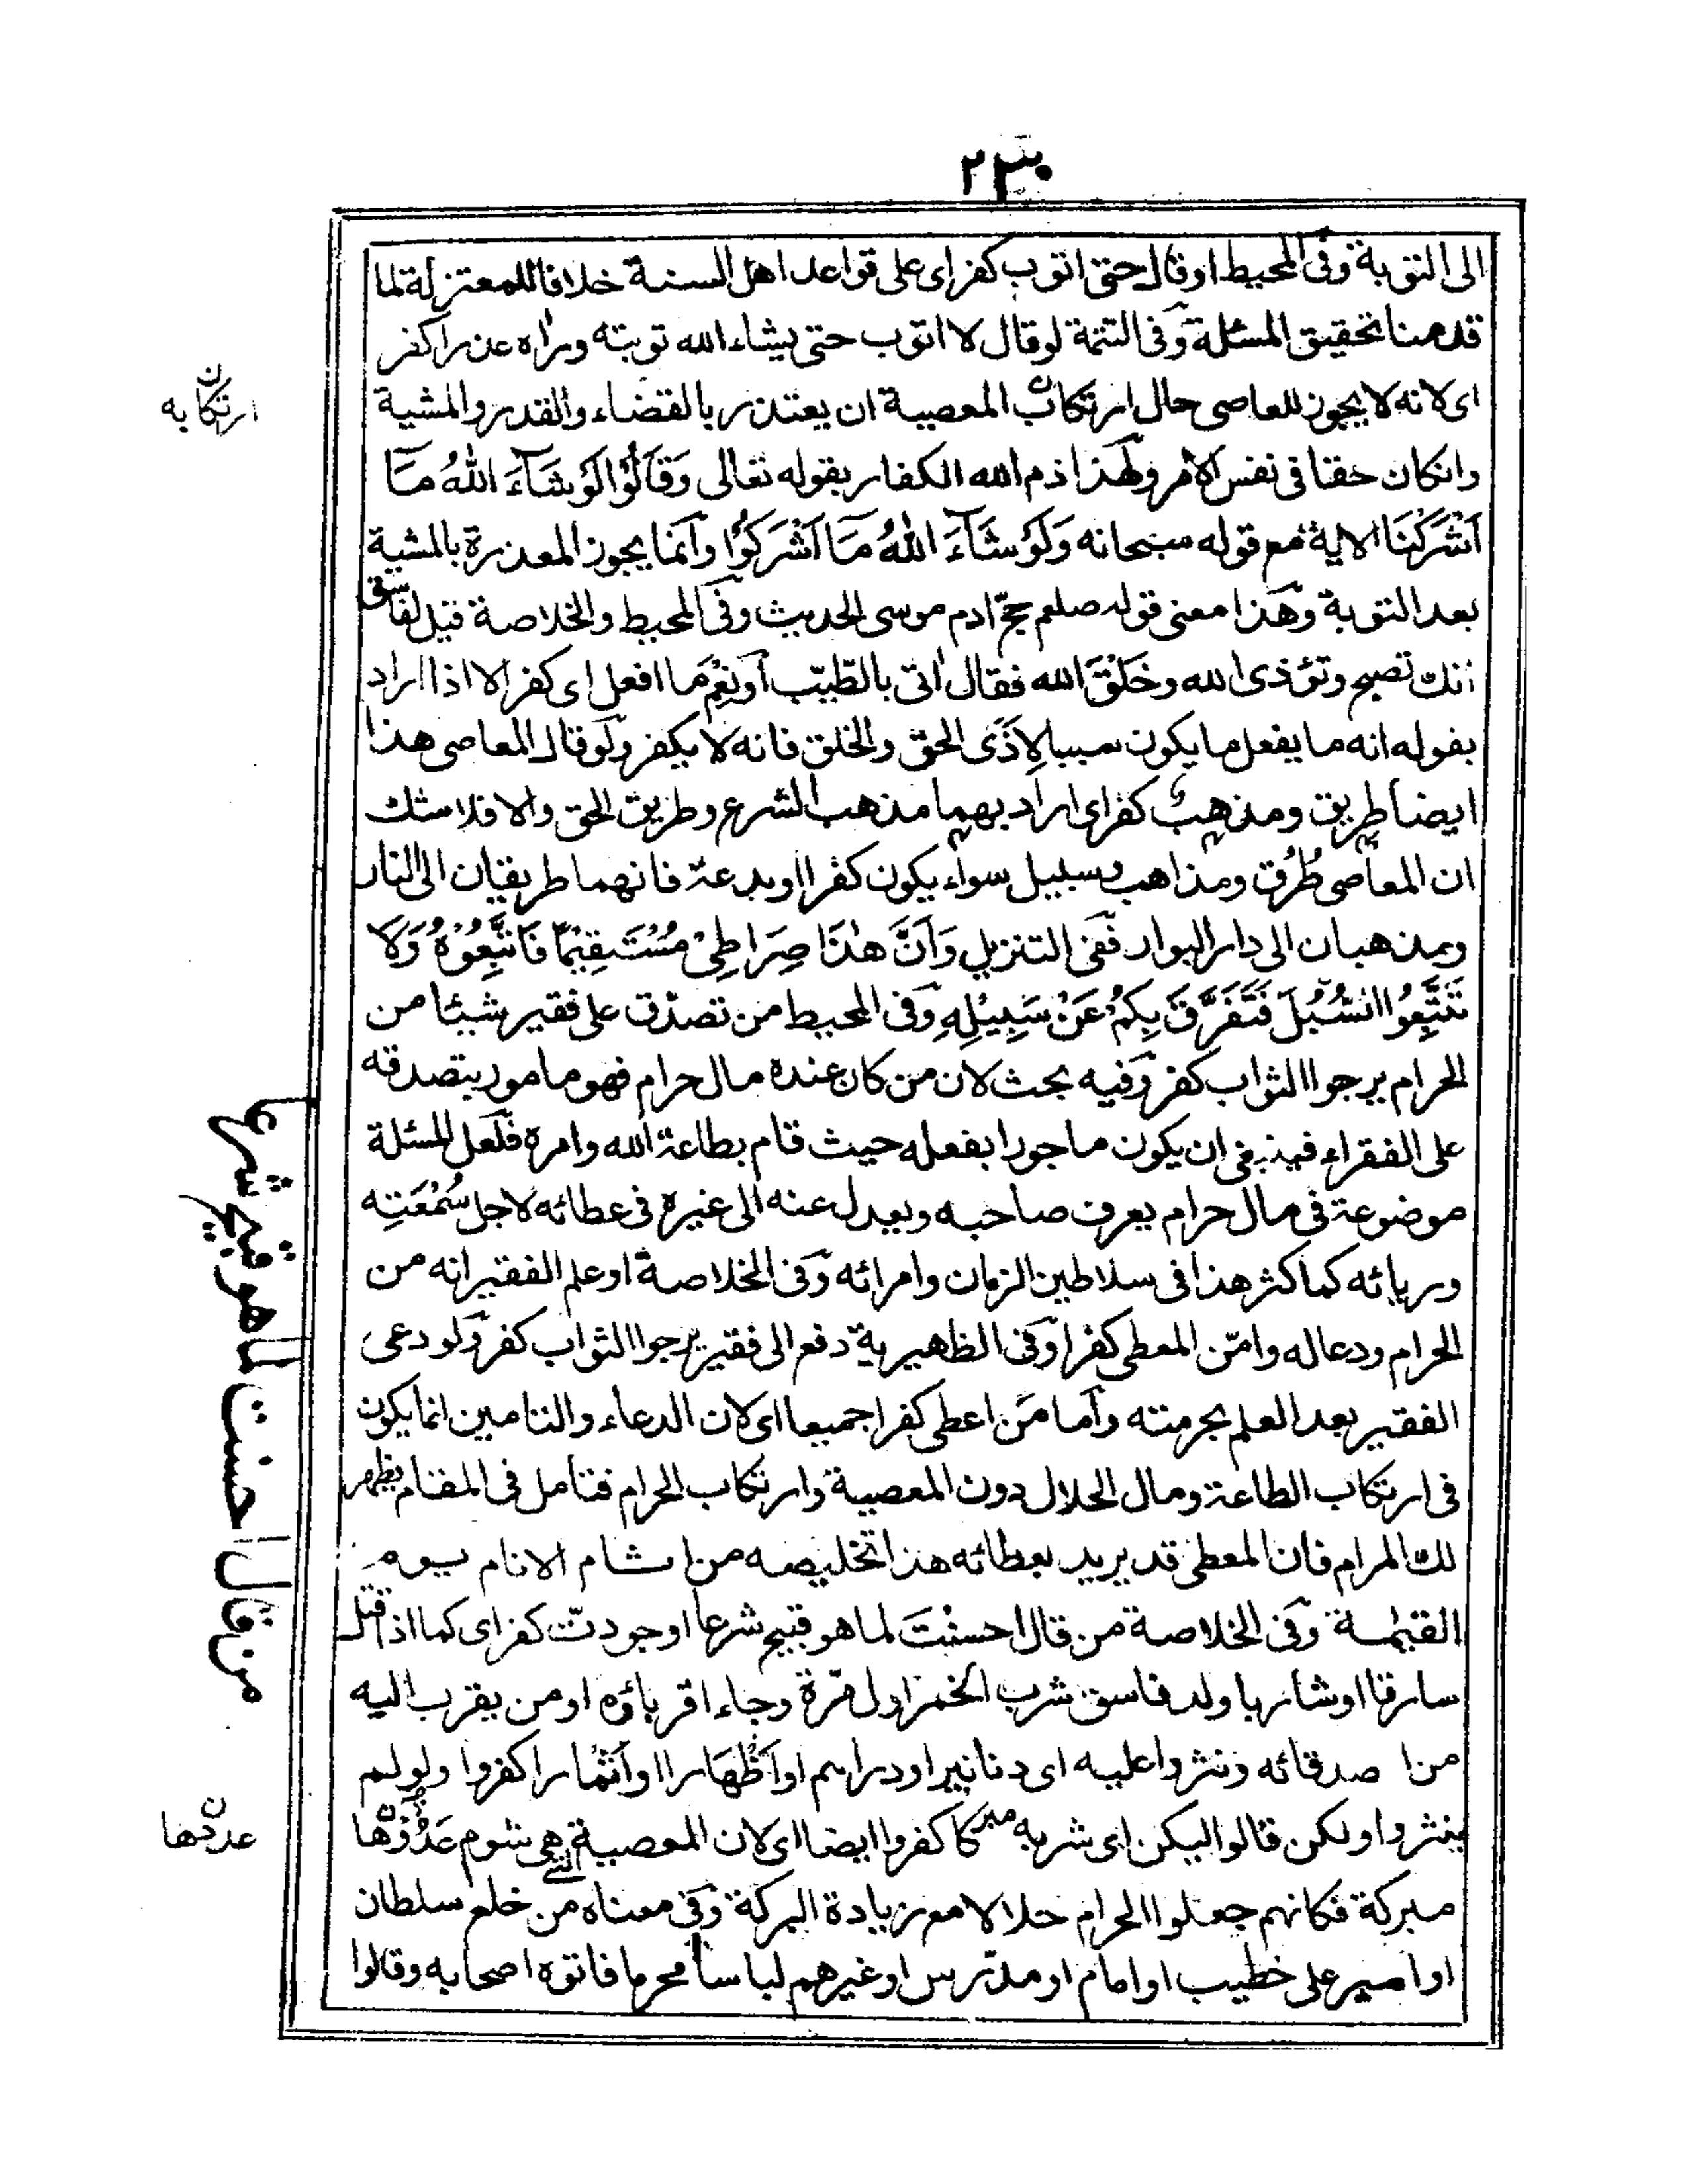 ٢٣٠
الى التوبة وفى المحيط او قال حتى اتوب كفر اى على قواعد اهل السنة خلافا للمعتزلة لما
قدمنا تحقيق المسئلة وفى التتمة لو قال لا اتوب حتى يشاء الله توبته وراه عذرا كفر
اى لانه لا يجوز للعاصى حال ارتكاب المعصية ان يعتذر بالقضاء والقدر والمشية
وانكان حقا فى نفس الامر ولهذا ذم الله الكفار بقوله تعالى وَقَالُوْا لَوْ شَآءَ اللهُ مَآ
اَشْرَكْنَا الاية مع قوله سبحانه وَلَوْ شَآءَ اللهُ مَآ اَشْرَكُوْا وانما يجوز المعذرة بالمشية
بعد التوبة وهذا معنى قوله صلعم حجّ ادم موسى الحديث وفى المحيط والخلاصة قيل لفاسق
انك تصبح وتؤذى الله وخَلْقَ الله فقال انى بالطّيّب اونِعْمَ ما افعل اى كفر الا اذا اراد
بقوله انه ما يفعل ما يكون سببا لِاَذَى الحق والخلق فانه لا يكفر ولو قال المعاصى هذا
ايضا طريق ومذهب كفر اى اراد بهما مذهب الشرع وطريق الحق والا فلا شك
ان المعاصى طُرُق ومذاهب وسبيل سواء يكون كفرا او بدعة فانهما طريقان الى النار
ومذهبان الى دار البوار ففى التنزيل وَاَنَّ هٰذَا صِرَاطِىْ مُسْتَقِيْمًا فَاتَّبِعُوْهُ وَلَا
تَتَّبِعُوا السُّبُلَ فَتَفَرَّقَ بِكُمْ عَنْ سَبِيْلِهٖ وفى المحيط من تصدّق على فقير شيئا من
الحرام يرجوا الثواب كفر وفيه بحث لان من كان عنده مال حرام فهو مامور بتصدقه
على الفقراء فينبغى ان يكون ماجورا بفعله حيث قام بطاعة الله وامره فلعل المسئلة
موضوعة فى مال حرام يعرف صاحبه ويعدل عنه الى غيره فى عطائه لاجل سُمْعَتِه
وريائه كما كثر هذا فى سلاطين الزمان وامرائه وفى الخلاصة او علم الفقير انه من
الحرام ودعا له وامّن المعطى كفرا وفى الظهيرية دفع الى فقير يرجوا الثواب كفر ولو دعى
الفقير بعد العلم بحرمته وآما مَن اعطى كفرا جميعا اى لان الدعاء والتامين انما يكون
فى ارتكاب الطاعة ومال الحلال دون المعصية وارتكاب الحرام فتامل فى المقام يظهر
لك المرام فان المعطى قد يريد بعطائه هذا تخليصه من اشام الانام يوم
القيٰمة وفى الخلاصة من قال احسنْتَ لما هو قبيح شرعا او جودتّ كفر اى كما اذا قتل
سارقا او شاربا ولد فاسق شرب الخمر اول مرّة وجاء اقرباؤه او من يقرب اليه
من اصدقائه ونثروا عليه اى دنانير او دراهم او اَظْهَارا او اَثْمارا كفروا ولو لم
ينثروا ولكن قالوا ليكن اى شربه مبركا كفروا ايضا اى لان المعصية التى هى شوم عَدُّوْها
مبركة فكانهم جعلوا الحرام حلالا مع زيادة البركة وفى معناه من خلع سلطان
او امير على خطيب او امام او مدرّس او غيرهم لباسا محرما فاتوه اصحابه وقالوا
ارتكابه
من قال احسنت لما هو قبيح شرعا
عدّها